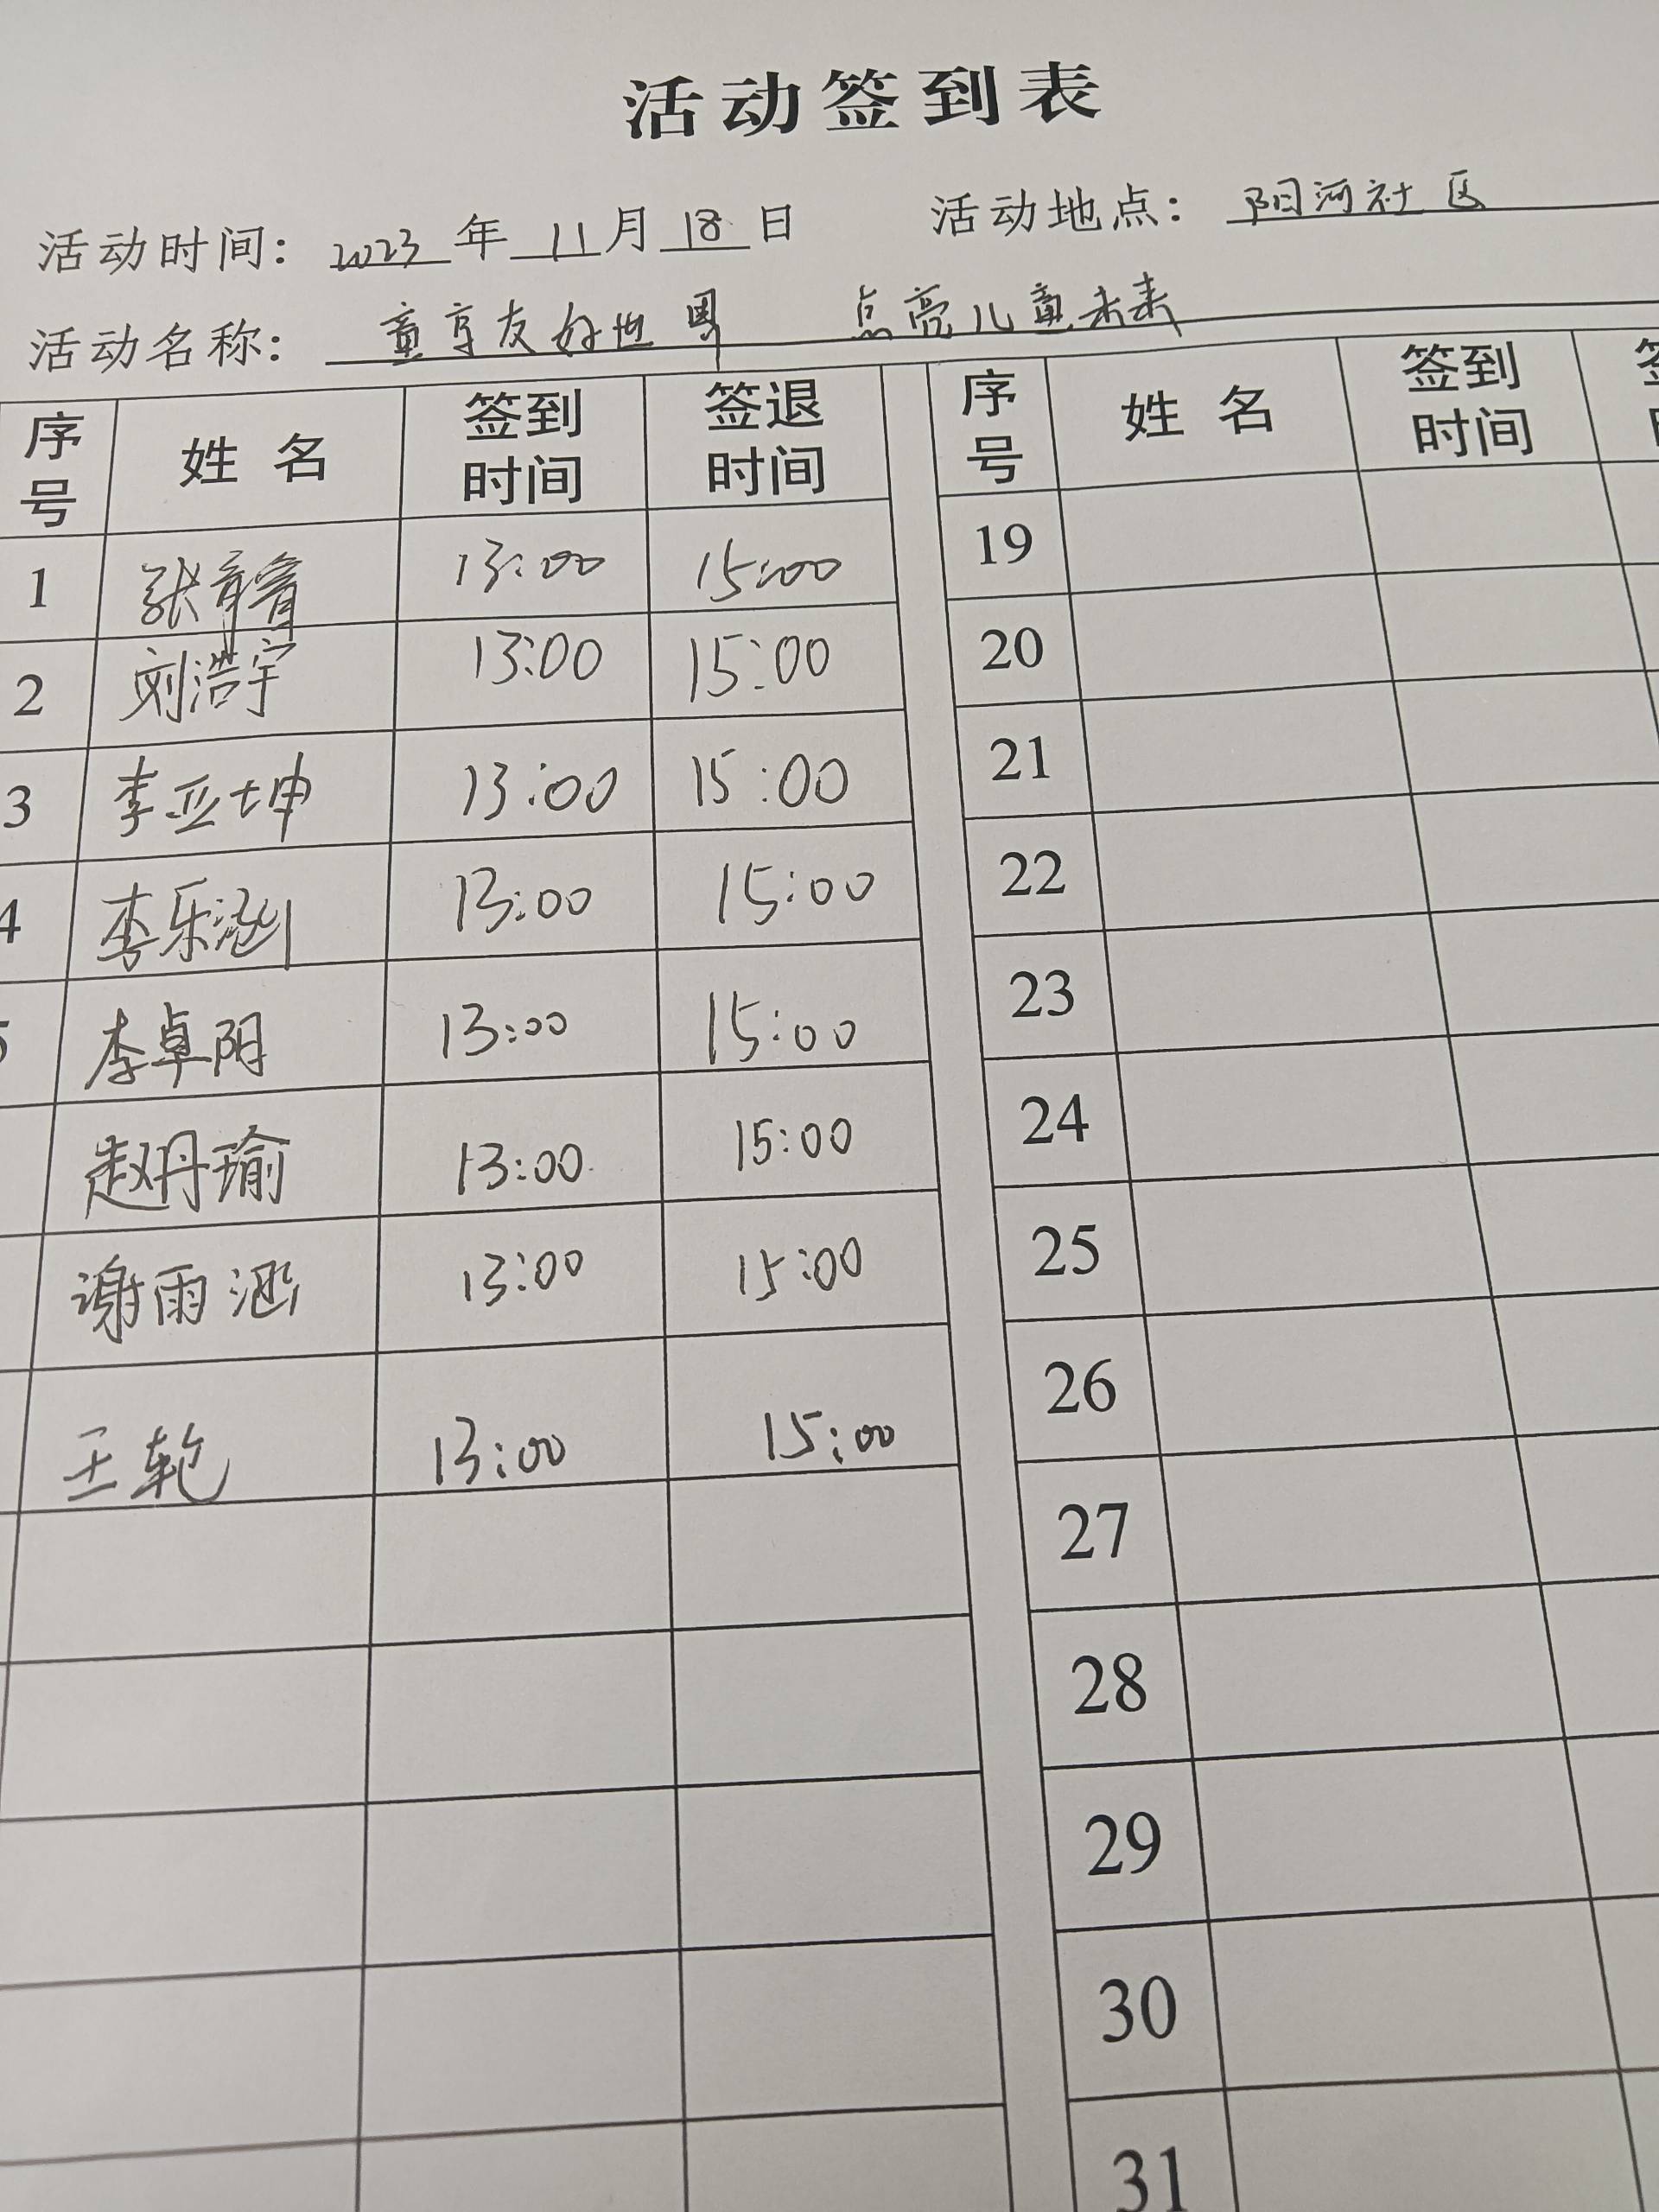 活动签到表
活动时间：2023年11月18日 活动地点：阳河社区
活动名称：童享友好世界 点亮儿童未来
序号 姓名 签到时间 签退时间 序号 姓名 签到时间
1 张 13:00 15:00 19
2 刘浩宇 13:00 15:00 20
3 李亚坤 13:00 15:00 21
4 李乐 13:00 15:00 22
李卓阳 13:00 15:00 23
赵丹瑜 13:00 15:00 24
谢雨涵 13:00 15:00 25
王乾 13:00 15:00 26
27
28
29
30
31